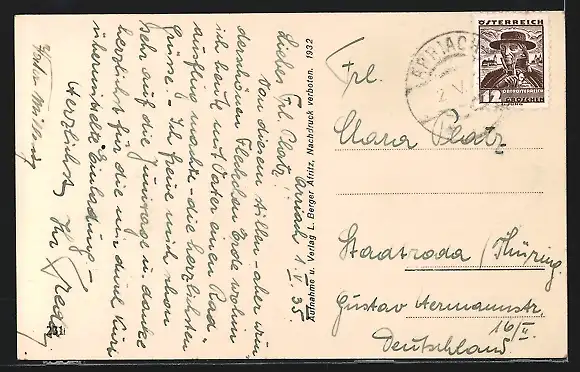 Arriach 1. V. 35.
Liebes Frl. Platz!
Von diesem stillen – aber wun
derschönen Fleckchen Erde wohin
ich heute mit Vater einen Rad
ausflug machte – die herzlichsten
Grüsse. – Ich freue mich schon
sehr auf die Junitage u. danke
herzlichst für die mir durch Kurt
übermittelte Einladung –
Herzlichst Ihr Fredy
231
Aufnahme u. Verlag L. Berger Afritz. Nachdruck verboten. 1932
ÖSTERREICH
OBERÖSTERREICH
12 GROSCHEN
ARRIACH
2. V.
Frl.
Clara Platz
Stadtroda / Thüring.
Gustav Hermannstr.
16/II.
Deutschland